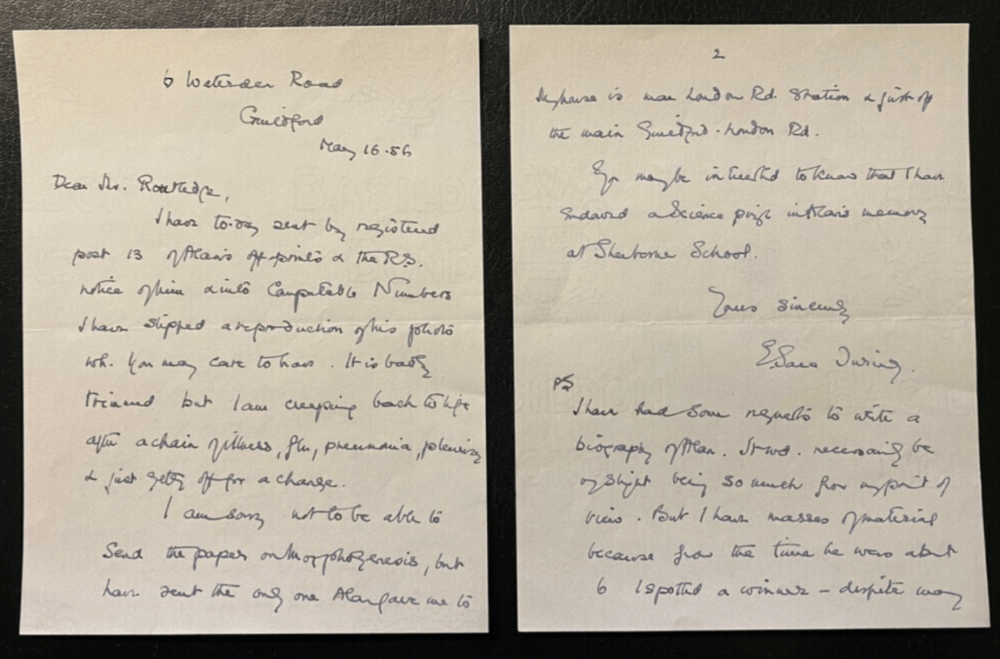 6 Waterden Road
Guildford
May 16.56
Dear Mr. Routledge,
I have to-day sent by registered
post 13 of Alan's off prints & the R.S.
notice of him & into Computable Numbers
I have slipped a reproduction of his photo
wh. you may care to have. It is badly
trimmed but I am creeping back to life
after a chain of illness, flu, pneumonia, pleurisy
& just getting off for a change.
I am sorry not to be able to
send the paper on Morphogenesis, but
have sent the only one Alan gave me to
2
My house is near London Rd. Station & just off
the main Guildford-London Rd.
You may be interested to know that I have
endowed a Science prize in Alan's memory
at Sherborne School.
Yours sincerely
E. Sara Turing.
PS
I have had some requests to write a
biography of Alan. It wd. necessarily be
slight being so much from my point of
view. But I have masses of material
because from the time he was about
6 I spotted a winner – despite many